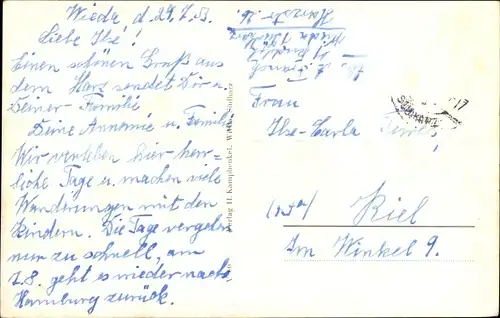 Wieda d. 29.7.53.
Liebe Ilse!
Einen schönen Gruß aus
dem Harz sendet Dir u.
Deiner Familie
Deine Annemie u. Familie
Wir verleben hier herr=
liche Tage u. machen viele
Wanderungen mit den
Kindern. Die Tage vergehen
nur zu schnell, am
1.8. geht es wieder nach
Hamburg zurück.
Verlag H. Kamphenkel, Wieda/Südharz
Frau
Ilse-Carla
Kiel
Im Winkel 9.